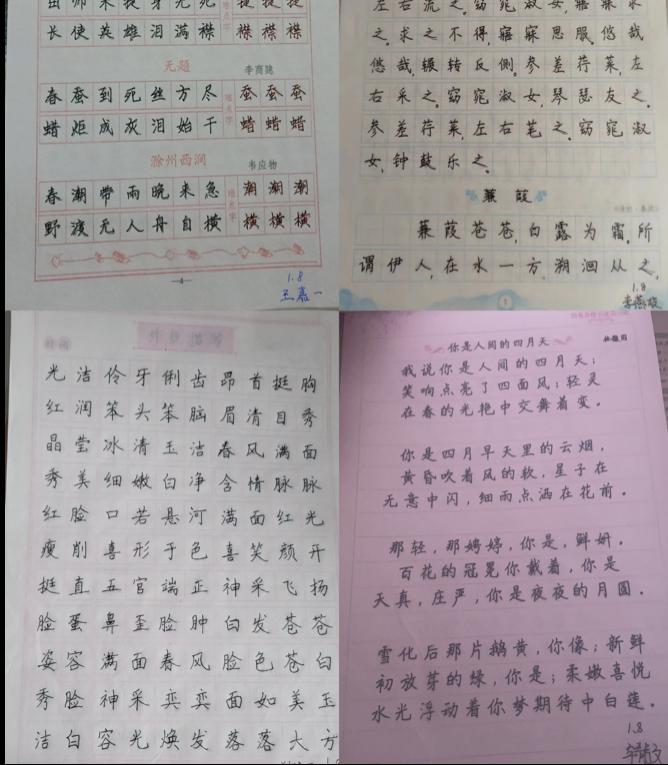 长使英雄泪满襟 襟襟襟
无题 李商隐
春蚕到死丝方尽 难点字 蚕蚕蚕
蜡炬成灰泪始干 蜡蜡蜡
滁州西涧 韦应物
春潮带雨晚来急 难点字 潮潮潮
野渡无人舟自横 横横横
1.8
王嘉一
左右流之。窈窕淑女，寤寐求
之。求之不得，寤寐思服。悠哉
悠哉，辗转反侧。参差荇菜，左
右采之。窈窕淑女，琴瑟友之。
参差荇菜，左右芼之。窈窕淑
女，钟鼓乐之。
蒹葭
蒹葭苍苍，白露为霜。所
谓伊人，在水一方。溯洄从之，
1
1.8
光洁伶牙俐齿昂首挺胸
红润笨头笨脑眉清目秀
晶莹冰清玉洁春风满面
秀美细嫩白净含情脉脉
红脸口若悬河满面红光
瘦削喜形于色喜笑颜开
挺直五官端正神采飞扬
脸蛋鼻歪脸肿白发苍苍
姿容满面春风脸色苍白
秀脸神采奕奕面如美玉
洁白容光焕发落落大方
你是人间的四月天
林徽因
我说你是人间的四月天；
笑响点亮了四面风；轻灵
在春的光艳中交舞着变。
你是四月早天里的云烟，
黄昏吹着风的软，星子在
无意中闪，细雨点洒在花前。
那轻，那娉婷，你是，鲜妍。
百花的冠冕你戴着，你是
天真，庄严，你是夜夜的月圆。
雪化后那片鹅黄，你像；新鲜
初放芽的绿，你是；柔嫩喜悦
水光浮动着你梦期待中白莲。
1.8